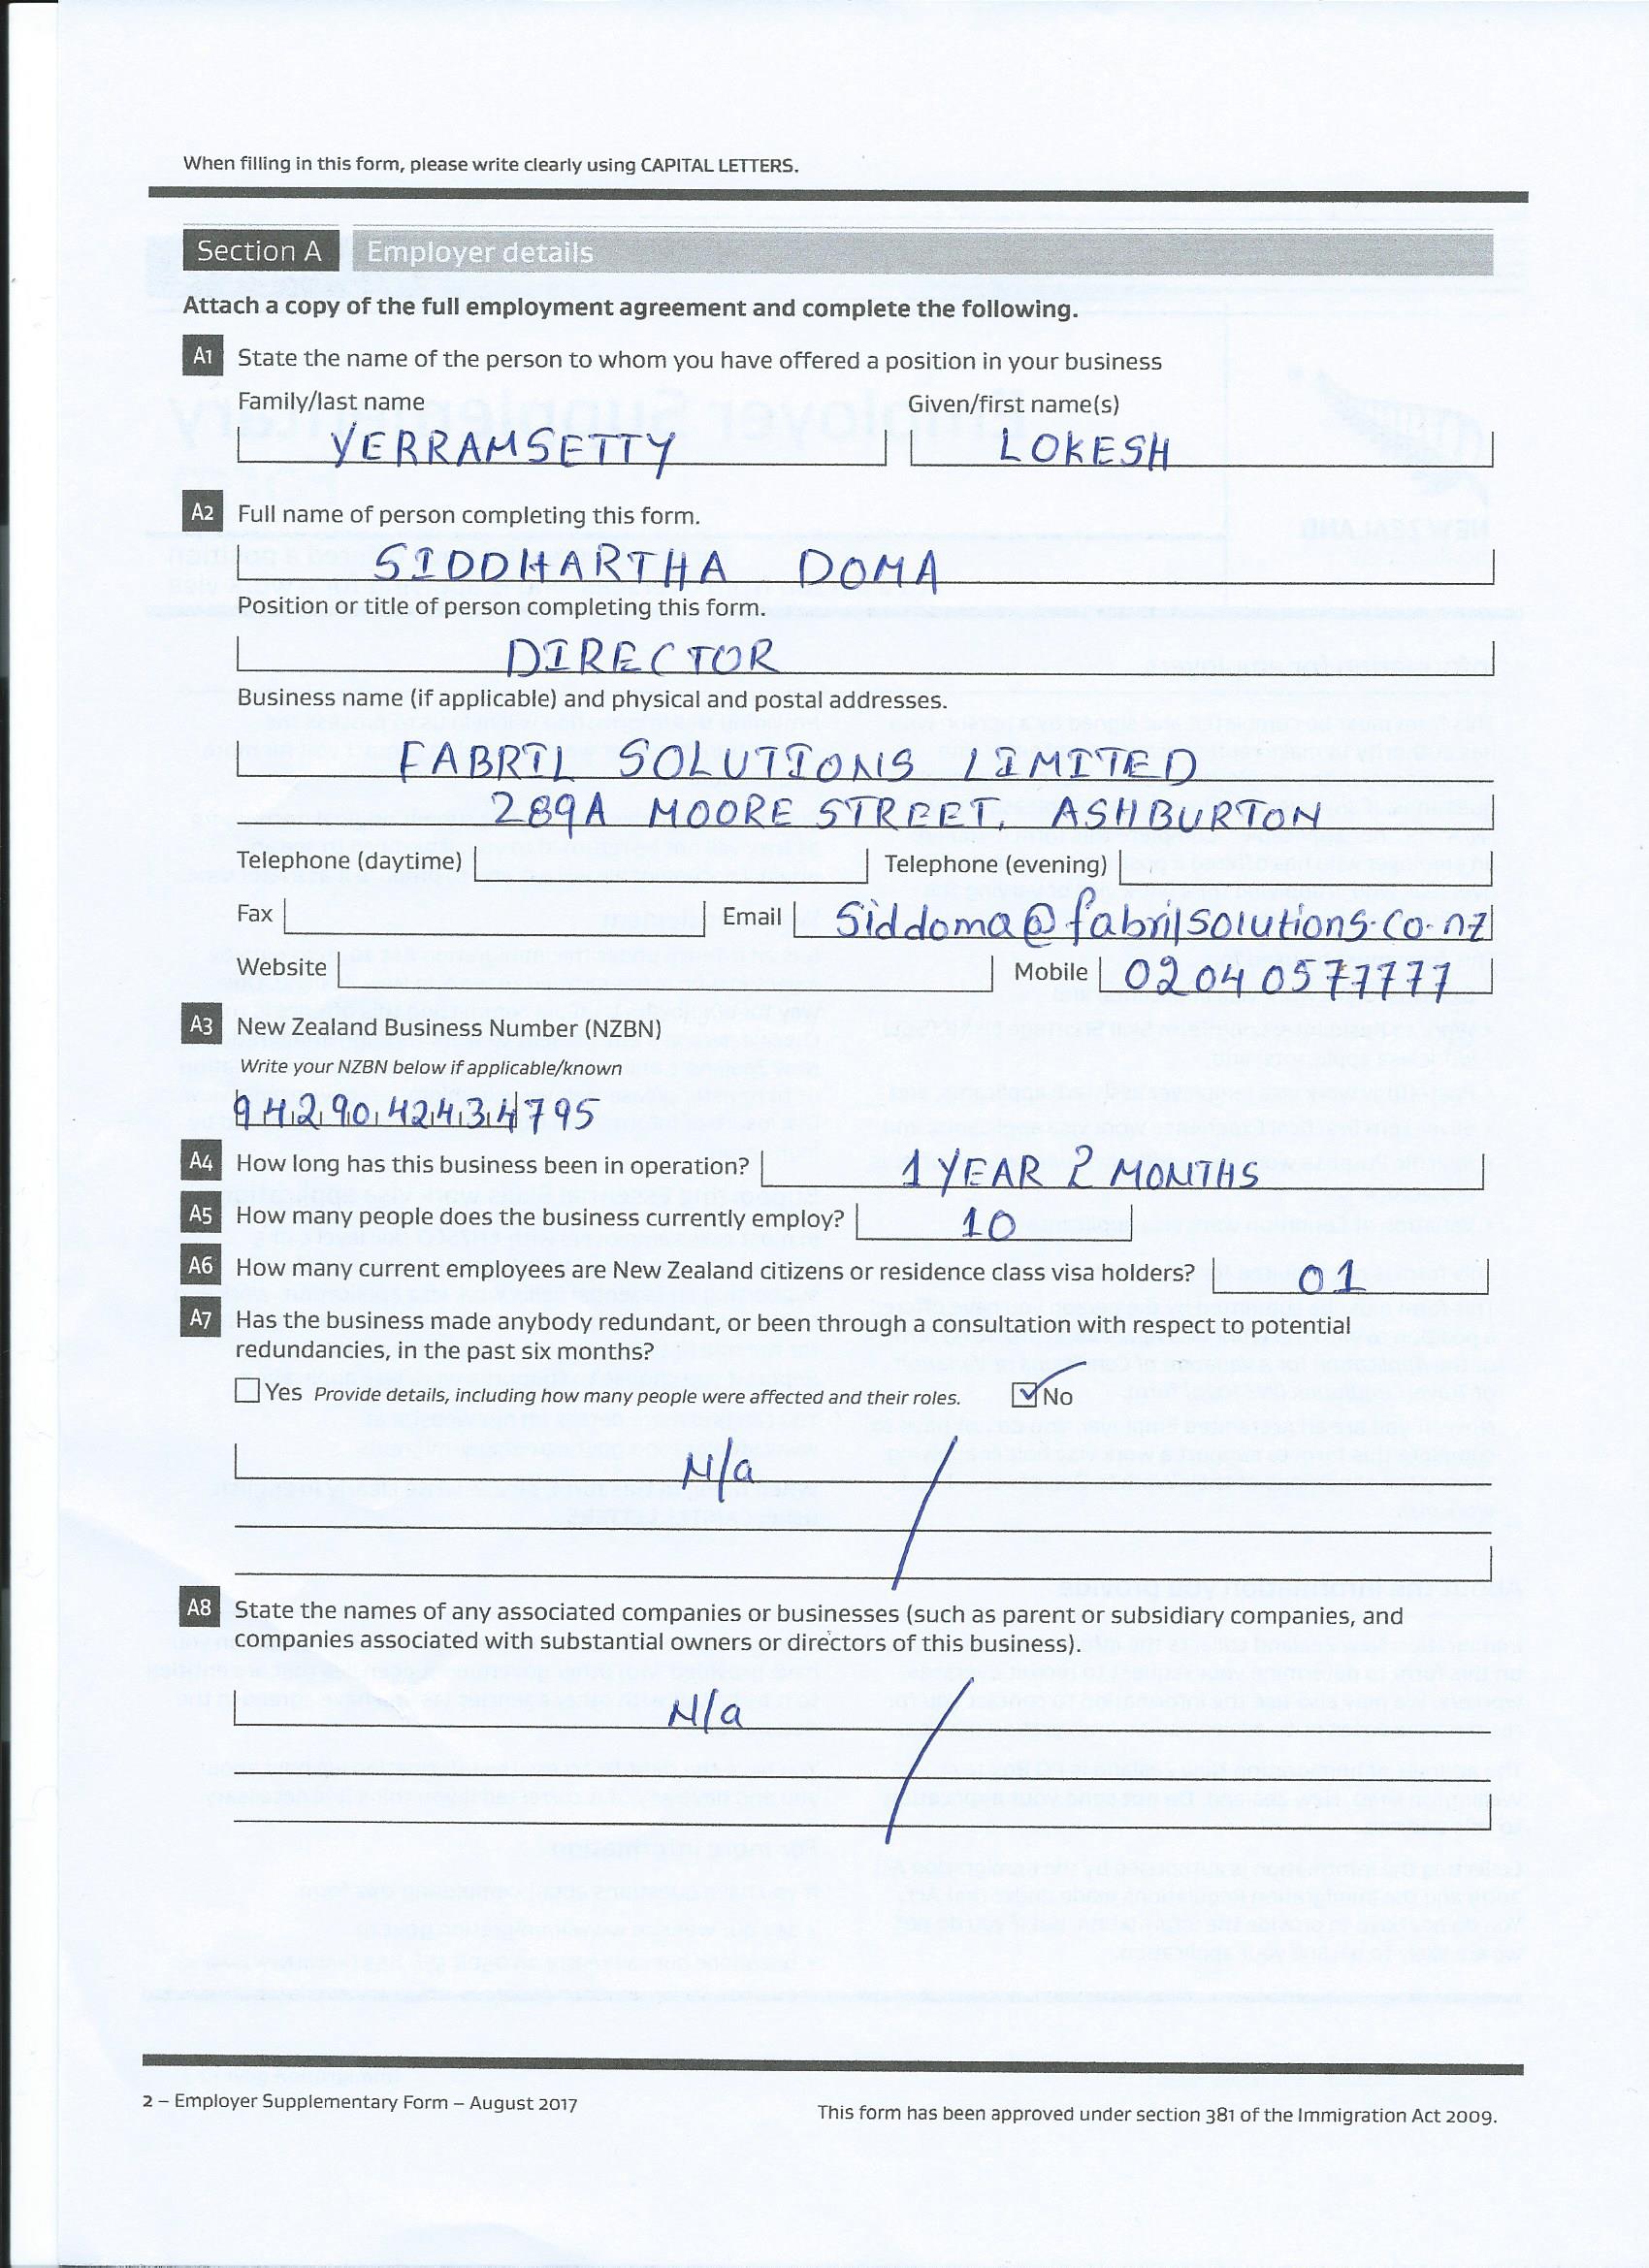 When filling in this form, please write clearly using CAPITAL LETTERS.
Section A Employer details
Attach a copy of the full employment agreement and complete the following.
A1 State the name of the person to whom you have offered a position in your business
Family/last name Given/first name(s)
YERRAMSETTY LOKESH
A2 Full name of person completing this form.
SIDDHARTHA DOMA
Position or title of person completing this form.
DIRECTOR
Business name (if applicable) and physical and postal addresses.
FABRIL SOLUTIONS LIMITED
289A MOORE STREET, ASHBURTON
Telephone (daytime) Telephone (evening)
Fax Email Siddoma@fabrilsolutions.co.nz
Website Mobile 02040577777
A3 New Zealand Business Number (NZBN)
Write your NZBN below if applicable/known
9429042434795
A4 How long has this business been in operation? 1 YEAR 2 MONTHS
A5 How many people does the business currently employ? 10
A6 How many current employees are New Zealand citizens or residence class visa holders? 01
A7 Has the business made anybody redundant, or been through a consultation with respect to potential
redundancies, in the past six months?
Yes Provide details, including how many people were affected and their roles. No
N/a
A8 State the names of any associated companies or businesses (such as parent or subsidiary companies, and
companies associated with substantial owners or directors of this business).
N/a
2 – Employer Supplementary Form – August 2017
This form has been approved under section 381 of the Immigration Act 2009.